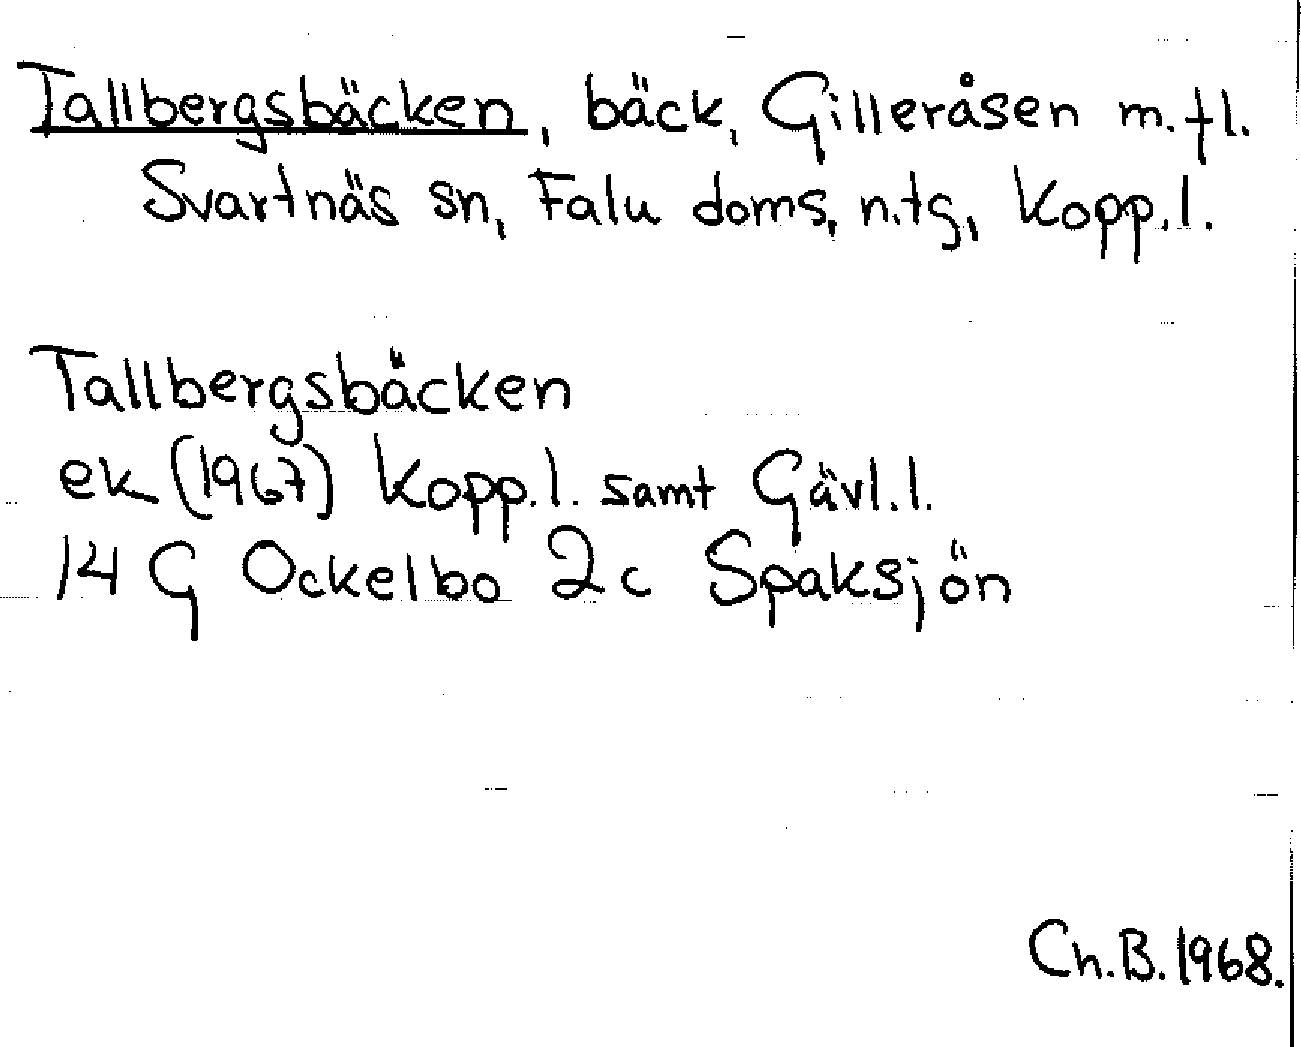 Tallbergsbäcken, bäck, Gilleråsen m.fl.
Svartnäs sn, Falu doms, n.tg, Kopp.l.
Tallbergsbäcken
ek (1967) Kopp.l. samt Gävl.l.
14 G Ockelbo 2c Spaksjön
Ch.B.1968.